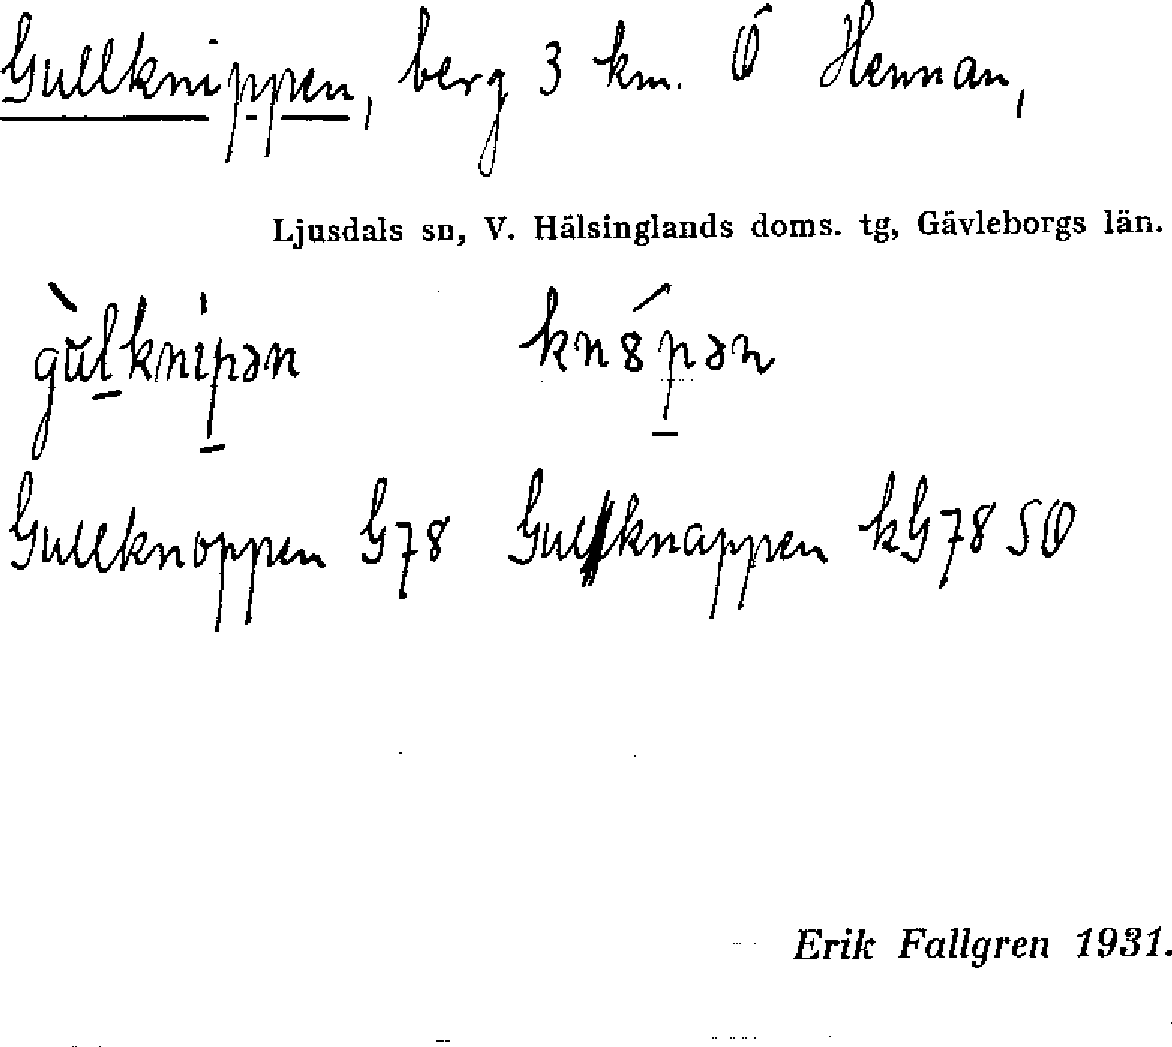 Gullknippen, berg 3 km. Ö Hennan,
Ljusdals sn, V. Hälsinglands doms. tg, Gävleborgs län.
gu̇̀l̲knip̲ən kn8́p̲ən
Gullknoppen G78 Gullknappen kG78 SO
Erik Fallgren 1931.